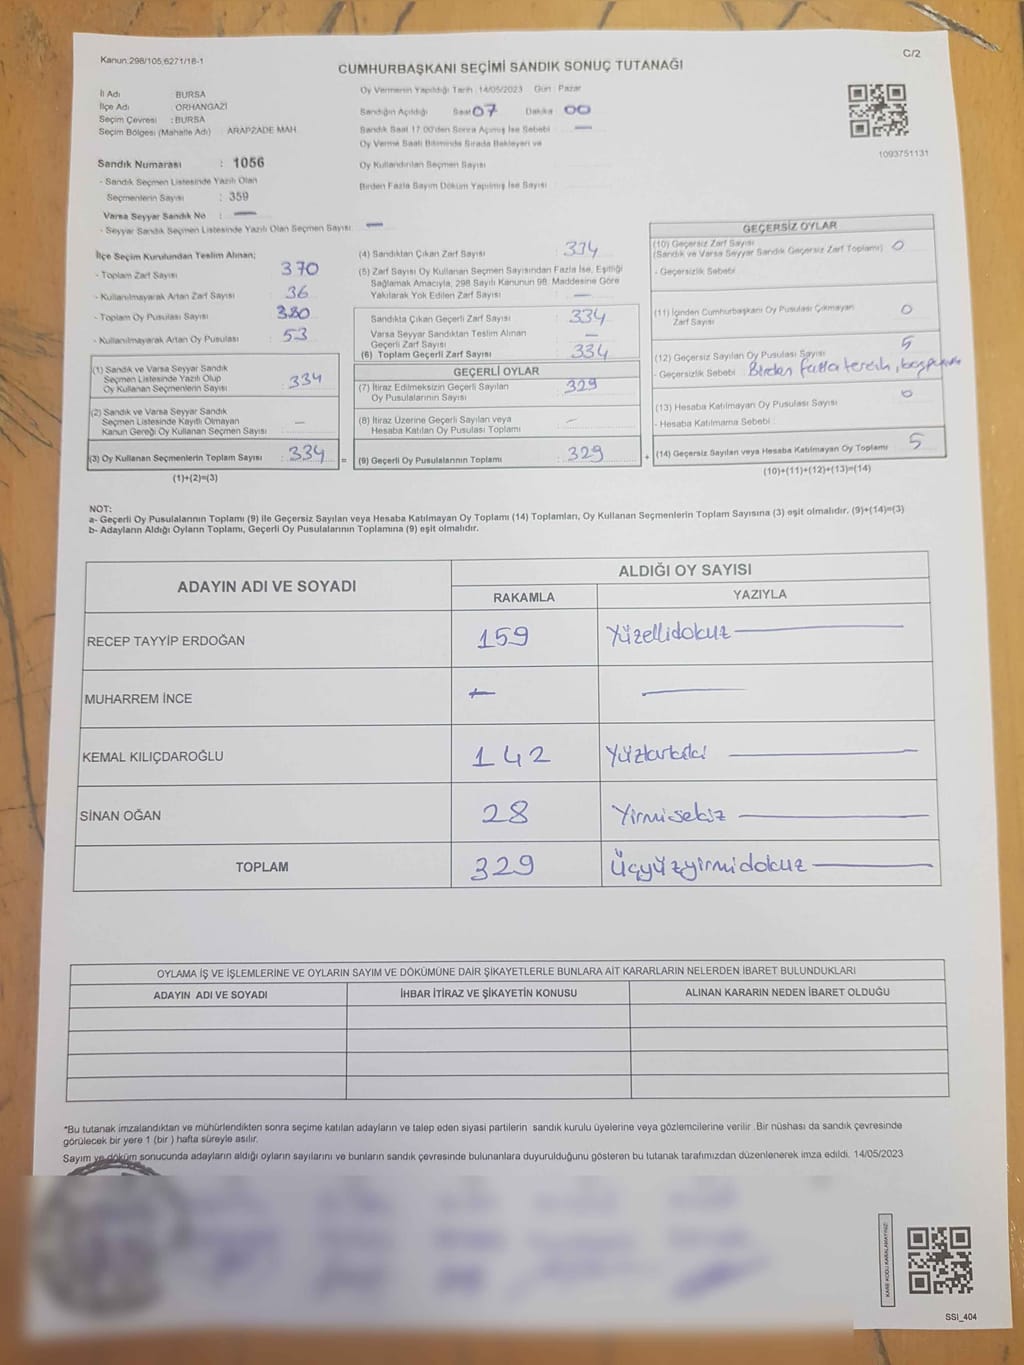 Kanun.298/105,6271/18-1
C/2
CUMHURBAŞKANI SEÇİMİ SANDIK SONUÇ TUTANAĞI
İl Adı BURSA
İlçe Adı ORHANGAZİ
Seçim Çevresi : BURSA
Seçim Bölgesi (Mahalle Adı) ARAPZADE MAH.
Oy Vermenin Yapıldığı Tarih : 14/05/2023 Gün : Pazar
Sandığın Açıldığı Saat 07 Dakika 00
Sandık Saat 17.00'den Sonra Açılmış İse Sebebi —
Oy Verme Saati Bitiminde Sırada Bekleyen ve
Oy Kullandırılan Seçmen Sayısı
Birden Fazla Sayım Döküm Yapılmış İse Sayısı
1093751131
Sandık Numarası : 1056
- Sandık Seçmen Listesinde Yazılı Olan
Seçmenlerin Sayısı : 359
Varsa Seyyar Sandık No : —
- Seyyar Sandık Seçmen Listesinde Yazılı Olan Seçmen Sayısı : —
İlçe Seçim Kurulundan Teslim Alınan;
- Toplam Zarf Sayısı : 370
- Kullanılmayarak Artan Zarf Sayısı : 36
- Toplam Oy Pusulası Sayısı : 380
- Kullanılmayarak Artan Oy Pusulası : 53
(1) Sandık ve Varsa Seyyar Sandık
Seçmen Listesinde Yazılı Olup
Oy Kullanan Seçmenlerin Sayısı : 334
(2) Sandık ve Varsa Seyyar Sandık
Seçmen Listesinde Kayıtlı Olmayan
Kanun Gereği Oy Kullanan Seçmen Sayısı : —
(3) Oy Kullanan Seçmenlerin Toplam Sayısı : 334 =
(1)+(2)=(3)
(4) Sandıktan Çıkan Zarf Sayısı : 334
(5) Zarf Sayısı Oy Kullanan Seçmen Sayısından Fazla İse, Eşitliği
Sağlamak Amacıyla, 298 Sayılı Kanunun 98. Maddesine Göre
Yakılarak Yok Edilen Zarf Sayısı : —
Sandıkta Çıkan Geçerli Zarf Sayısı : 334
Varsa Seyyar Sandıktan Teslim Alınan
Geçerli Zarf Sayısı : —
(6) Toplam Geçerli Zarf Sayısı : 334
GEÇERLİ OYLAR
(7) İtiraz Edilmeksizin Geçerli Sayılan
Oy Pusulalarının Sayısı : 329
(8) İtiraz Üzerine Geçerli Sayılan veya
Hesaba Katılan Oy Pusulası Toplamı : —
(9) Geçerli Oy Pusulalarının Toplamı : 329 +
GEÇERSİZ OYLAR
(10) Geçersiz Zarf Sayısı
(Sandık ve Varsa Seyyar Sandık Geçersiz Zarf Toplamı) : 0
- Geçersizlik Sebebi
(11) İçinden Cumhurbaşkanı Oy Pusulası Çıkmayan
Zarf Sayısı 0
(12) Geçersiz Sayılan Oy Pusulası Sayısı 5
- Geçersizlik Sebebi Birden fazla tercih,
(13) Hesaba Katılmayan Oy Pusulası Sayısı 0
- Hesaba Katılmama Sebebi
(14) Geçersiz Sayılan veya Hesaba Katılmayan Oy Toplamı 5
(10)+(11)+(12)+(13)=(14)
NOT:
a- Geçerli Oy Pusulalarının Toplamı (9) ile Geçersiz Sayılan veya Hesaba Katılmayan Oy Toplamı (14) Toplamları, Oy Kullanan Seçmenlerin Toplam Sayısına (3) eşit olmalıdır. (9)+(14)=(3)
b- Adayların Aldığı Oyların Toplamı, Geçerli Oy Pusulalarının Toplamına (9) eşit olmalıdır.
ADAYIN ADI VE SOYADI
ALDIĞI OY SAYISI
RAKAMLA YAZIYLA
RECEP TAYYİP ERDOĞAN 159 Yüzellidokuz
MUHARREM İNCE — —
KEMAL KILIÇDAROĞLU 142 Yüzkırkiki
SİNAN OĞAN 28 Yirmisekiz
TOPLAM 329 Üçyüzyirmidokuz
OYLAMA İŞ VE İŞLEMLERİNE VE OYLARIN SAYIM VE DÖKÜMÜNE DAİR ŞİKAYETLERLE BUNLARA AİT KARARLARIN NELERDEN İBARET BULUNDUKLARI
ADAYIN ADI VE SOYADI İHBAR İTİRAZ VE ŞİKAYETİN KONUSU ALINAN KARARIN NEDEN İBARET OLDUĞU
*Bu tutanak imzalandıktan ve mühürlendikten sonra seçime katılan adayların ve talep eden siyasi partilerin sandık kurulu üyelerine veya gözlemcilerine verilir .Bir nüshası da sandık çevresinde
görülecek bir yere 1 (bir ) hafta süreyle asılır.
Sayım ve döküm sonucunda adayların aldığı oyların sayılarını ve bunların sandık çevresinde bulunanlara duyurulduğunu gösteren bu tutanak tarafımızdan düzenlenerek imza edildi. 14/05/2023
KARE KODU KARALAMAYINIZ
SSI_404